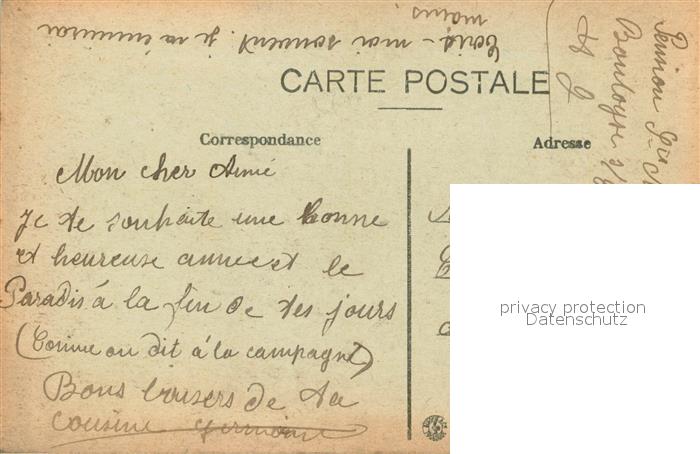 Ecris-moi souvent. je
CARTE POSTALE
Correspondance
Adresse
Mon cher Aimé
Je te souhaite une bonne
et heureuse annee et le
Paradis á la fin de tes jours
(Comme on dit á la campagne)
Bons baisers de ta
cousine Germaine
Pension
Boulogne s/
privacy protection
Datenschutz